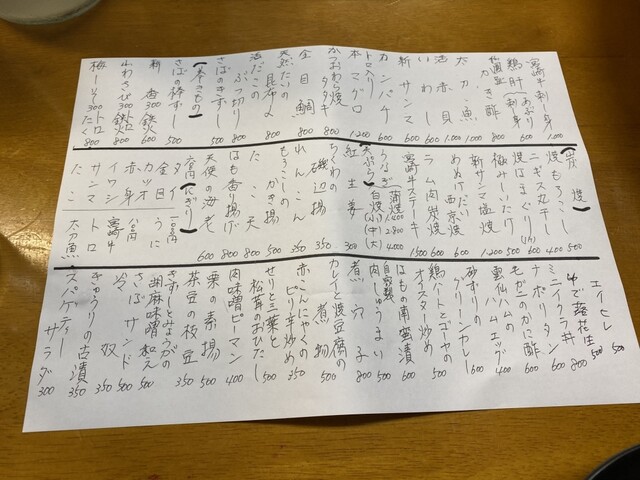 宮崎牛刺し身 1.000
鶏肝(あぶり 刺身 600
かき酢 800
太刀魚 1.000
活赤貝 1.000
いわし 600
新サンマ 800
カンパチ 800
トロ入り
本マグロ 1.200
かつおわら焼
タタキ 800
金目鯛 800
天然だいの
昆布〆 800
活だこの
ぶつ切り 800
さばのきずし 500
さばの棒ずし 500
(巻きもの)
新香 300 鉄火 600
山わさび 300 トロ鉄火 800
梅しそ 300 トロたく 800
(炭焼)
焼もろこし 500
ニギス丸干し 400
焼はまぐり(1ヶ) 500
極みしいたけ 500
新サンマ塩焼 1.200
めぬけだい
西京焼 600
ラム肉炭焼 600
宮崎牛ステーキ 1.500
うなぎ
蒲焼 白焼
(小) 1.400
(中) 2.800
(大) 4.000
(天ぷら)
紅生姜 300
ちくわの
磯辺揚 350
れんこん 300
もろこしの
かき揚 500
たこ天 800
はも香り揚げ 800
天使の海老 600
(にぎり)
タイ 金目 カツオ 赤身 イワシ サンマ たこ
うに
宮崎牛
トロ
太刀魚
エイヒレ 500
ゆで落花生 500
ミニイクラ丼 800
ナポリタン 600
モガニのかに酢 600
雲仙ハムの
ハムエッグ 400
砂ずりの
グリーンカレー 600
鶏ハートとゴーヤの
オイスター炒め 600
はもの南蛮漬 600
自家製
肉しゅうまい 500
煮穴子 800
カレイと焼豆腐の
煮物 500
赤こんにゃくの
ピリ辛炒め 350
せりと三葉と
松茸のおひたし 500
肉味噌ピーマン 400
栗の素揚 500
茶豆の枝豆 350
きずしとみょうがの
胡麻味噌和え 500
さばサンド 500
冷奴 350
きゅうりの古漬 350
スパゲティー
サラダ 300